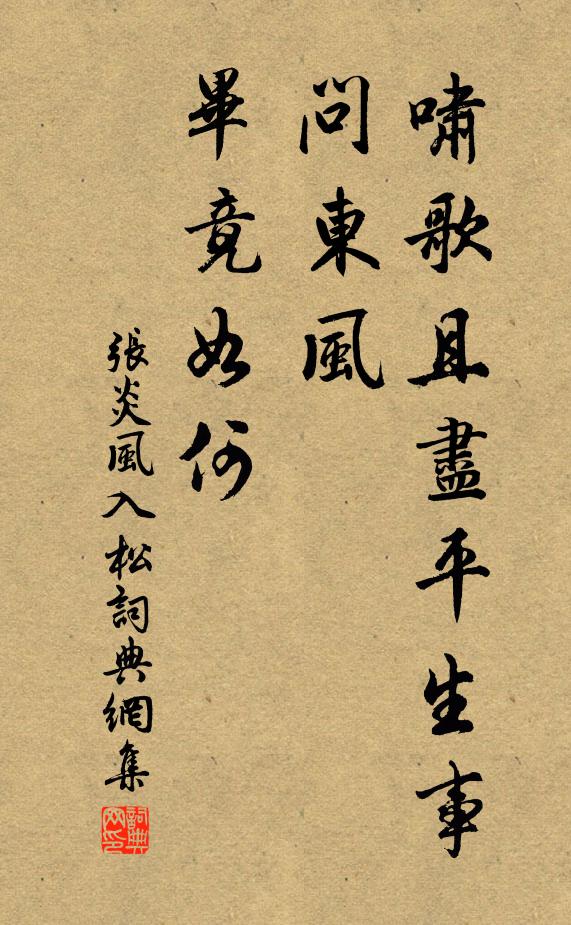 嘯歌且盡平生事
問東風
畢竟如何
張炎風入松詞典網集
詞典網印